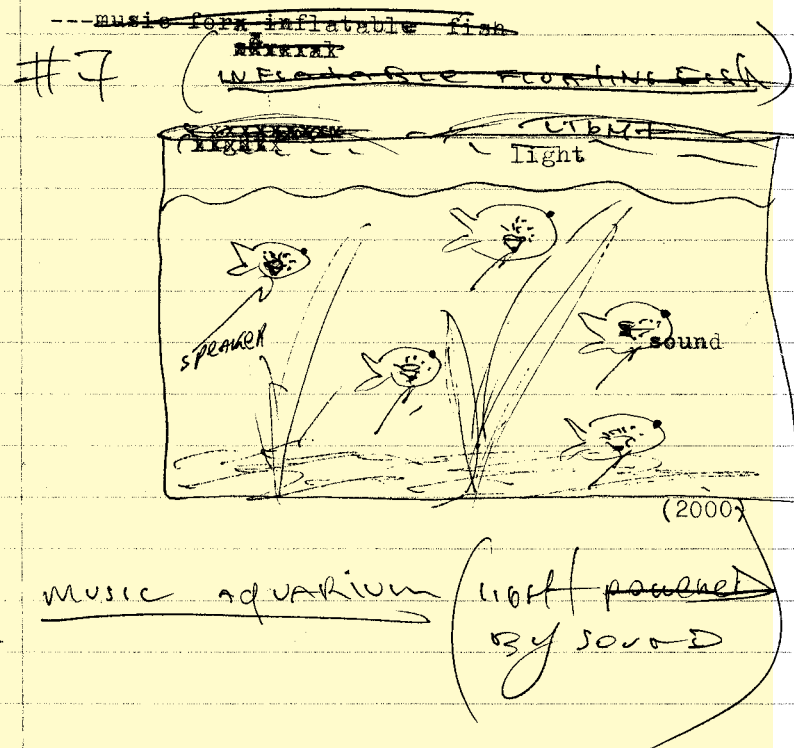 ---music for inflatable fish
#7
(INFLATABLE FLOATING FISH)
LIGHT
light
SPEAKER
sound
(2000)
MUSIC AQUARIUM (LIGHT powered
BY SOUND